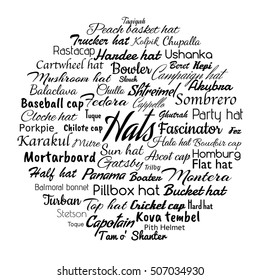 Taqiyah
Peach basket hat
Trucker hat Kolpik Chupalla
Rastacap Handee hat Ushanka
Cartwheel hat Bowler Beret Nepi
Mushroom hat Skully Campaign hat
Balaclava Chullo Shtreimel Akubra
Baseball cap Fedora Cappello Sombrero
Cloche hat Tuque Hats Ghutrah Party hat
Porkpie Chilote cap Fascinator Fez
Karakul Mitre Sun hat Halo hat Boudoir cap
Mortarboard Gatsby Ascot cap Homburg
Trilby Flat hat
Half hat Panama Boater Montera
Balmoral bonnet Pillbox hat Bucket hat
Turban Top hat Cricket cap Hard hat
Stetson Capotain Kova Tembel
Toque Pith Helmet
Tam o' Shanter
shutterstock.com · 507034930